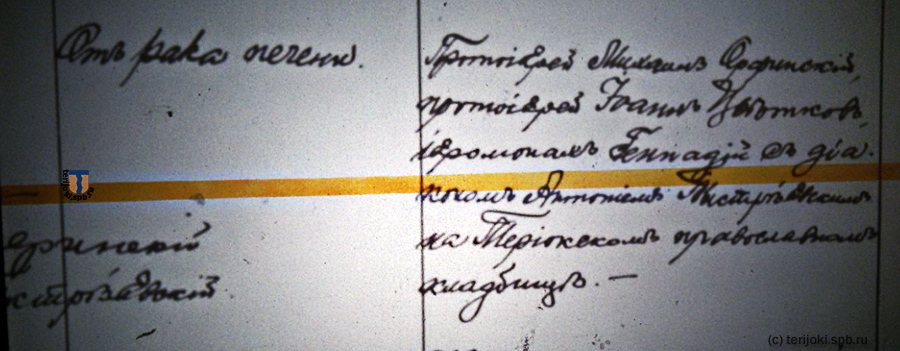 Отъ рака печени.
Протоіерей Михаилъ Орфинскій,
протоіерей Іоаннъ Цвѣтковъ,
іеромонахъ Геннадій съ діа-
кономъ Антоніемъ
на Теріокскомъ православномъ
кладбищѣ. —
terijoki
(c) terijoki.spb.ru